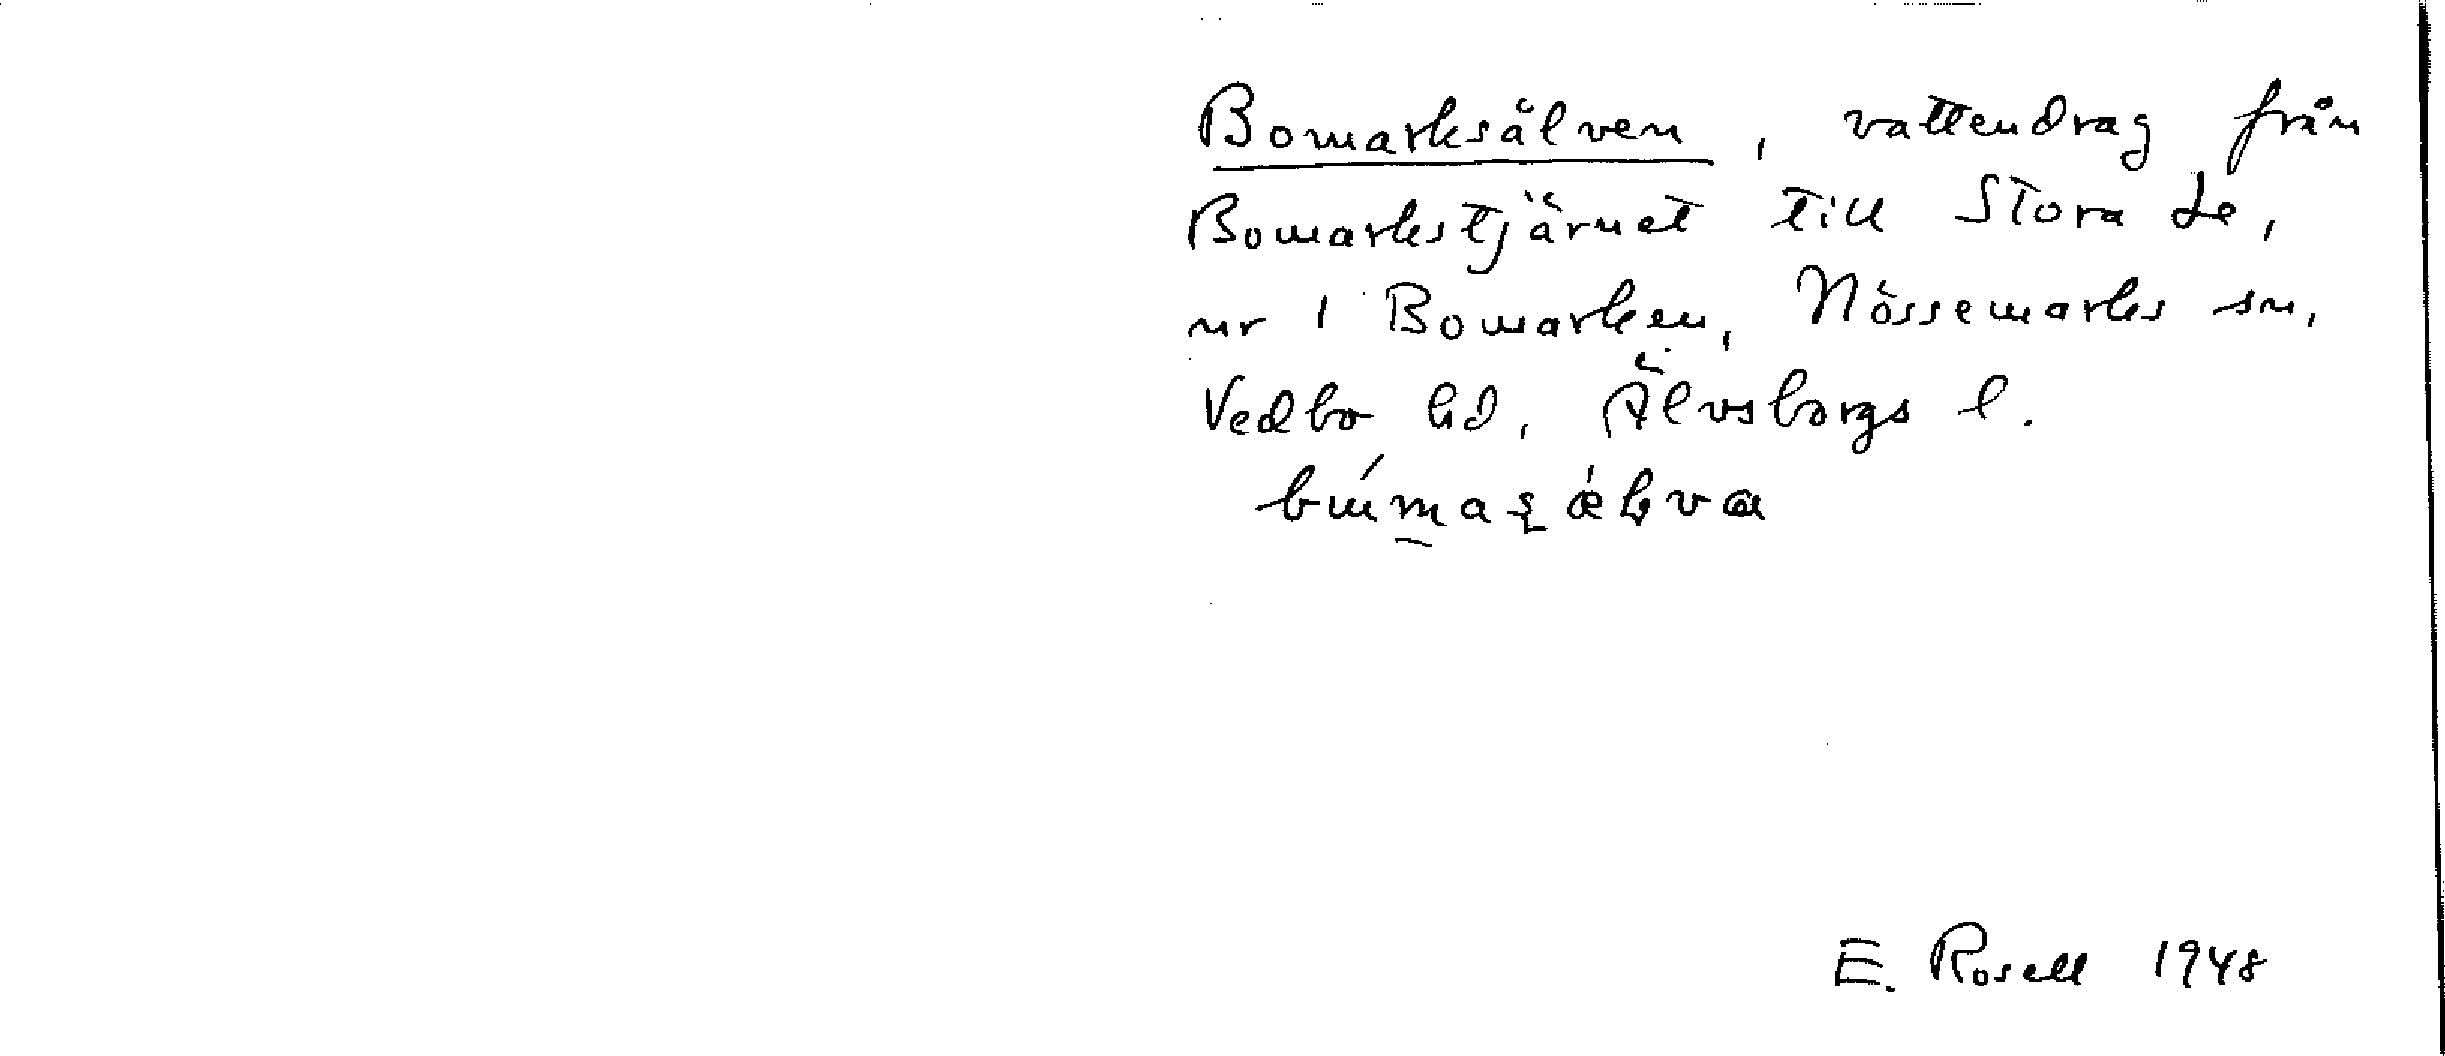 Bomarksälven, vattendrag från
Bomarkstjärnet till Stora Le,
nr 1 Bomarken, Nössemarks sn,
Vedbo hd, Älvsborgs l.
E. Rosell 1948